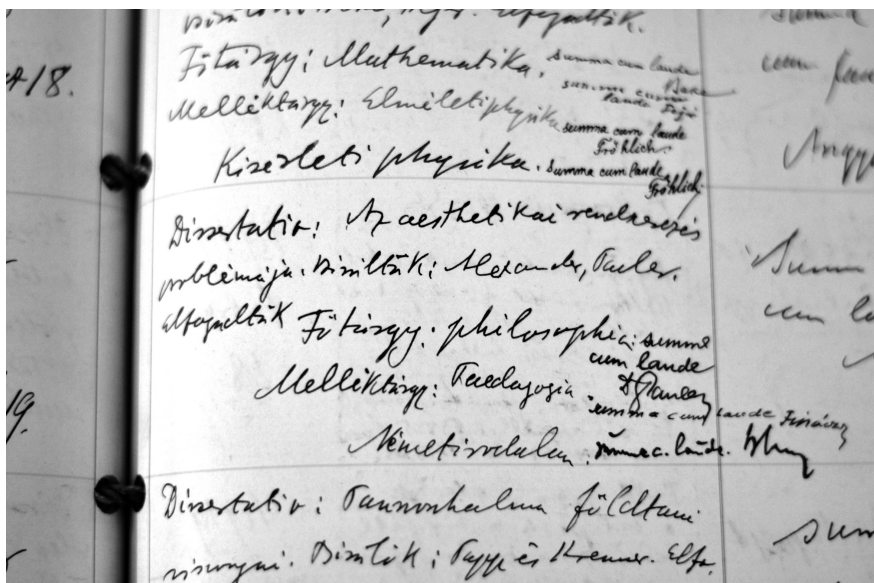 18.
Főtárgy: Mathematika. summa cum laude
summa cum
laude Fejér
Melléktárgy: Elméleti physika summa cum laude
Fröhlich.
Kisérleti physika. summa cum laude
Fröhlich
Dissertatio: Az aesthetikai rendszerezés
problémája. Biráltak: Alexander, Pauler.
Elfogadták Főtárgy: philosophia: summa
cum laude
Dr Pauler
Melléktárgy: Paedagogia
summa cum laude
Németirodalom. summa c. laude.
19.
Dissertatio: Pannonhalma földtani
viszonyai. Birálták: Papp és Krenner. Elfo.
cum
Summ
cum la